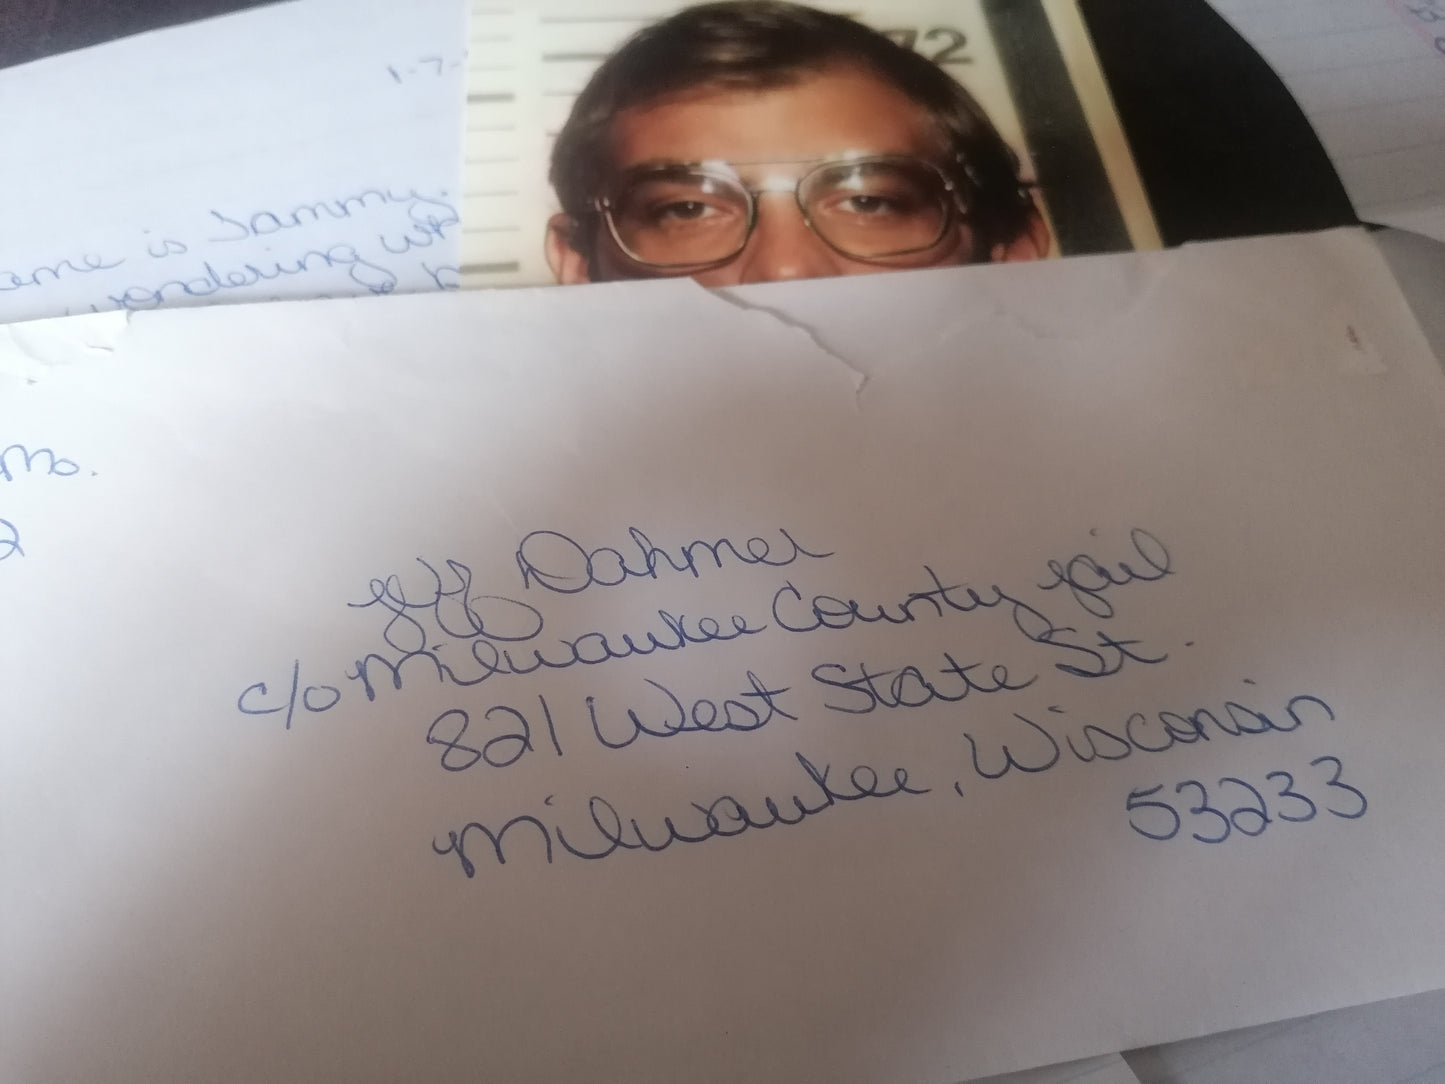 1-7-
ame is Tammy.
wondering wh
mo.
2
Jeff Dahmer
c/o Milwaukee County jail
821 West State St.
Milwaukee, Wisconsin
53233
72